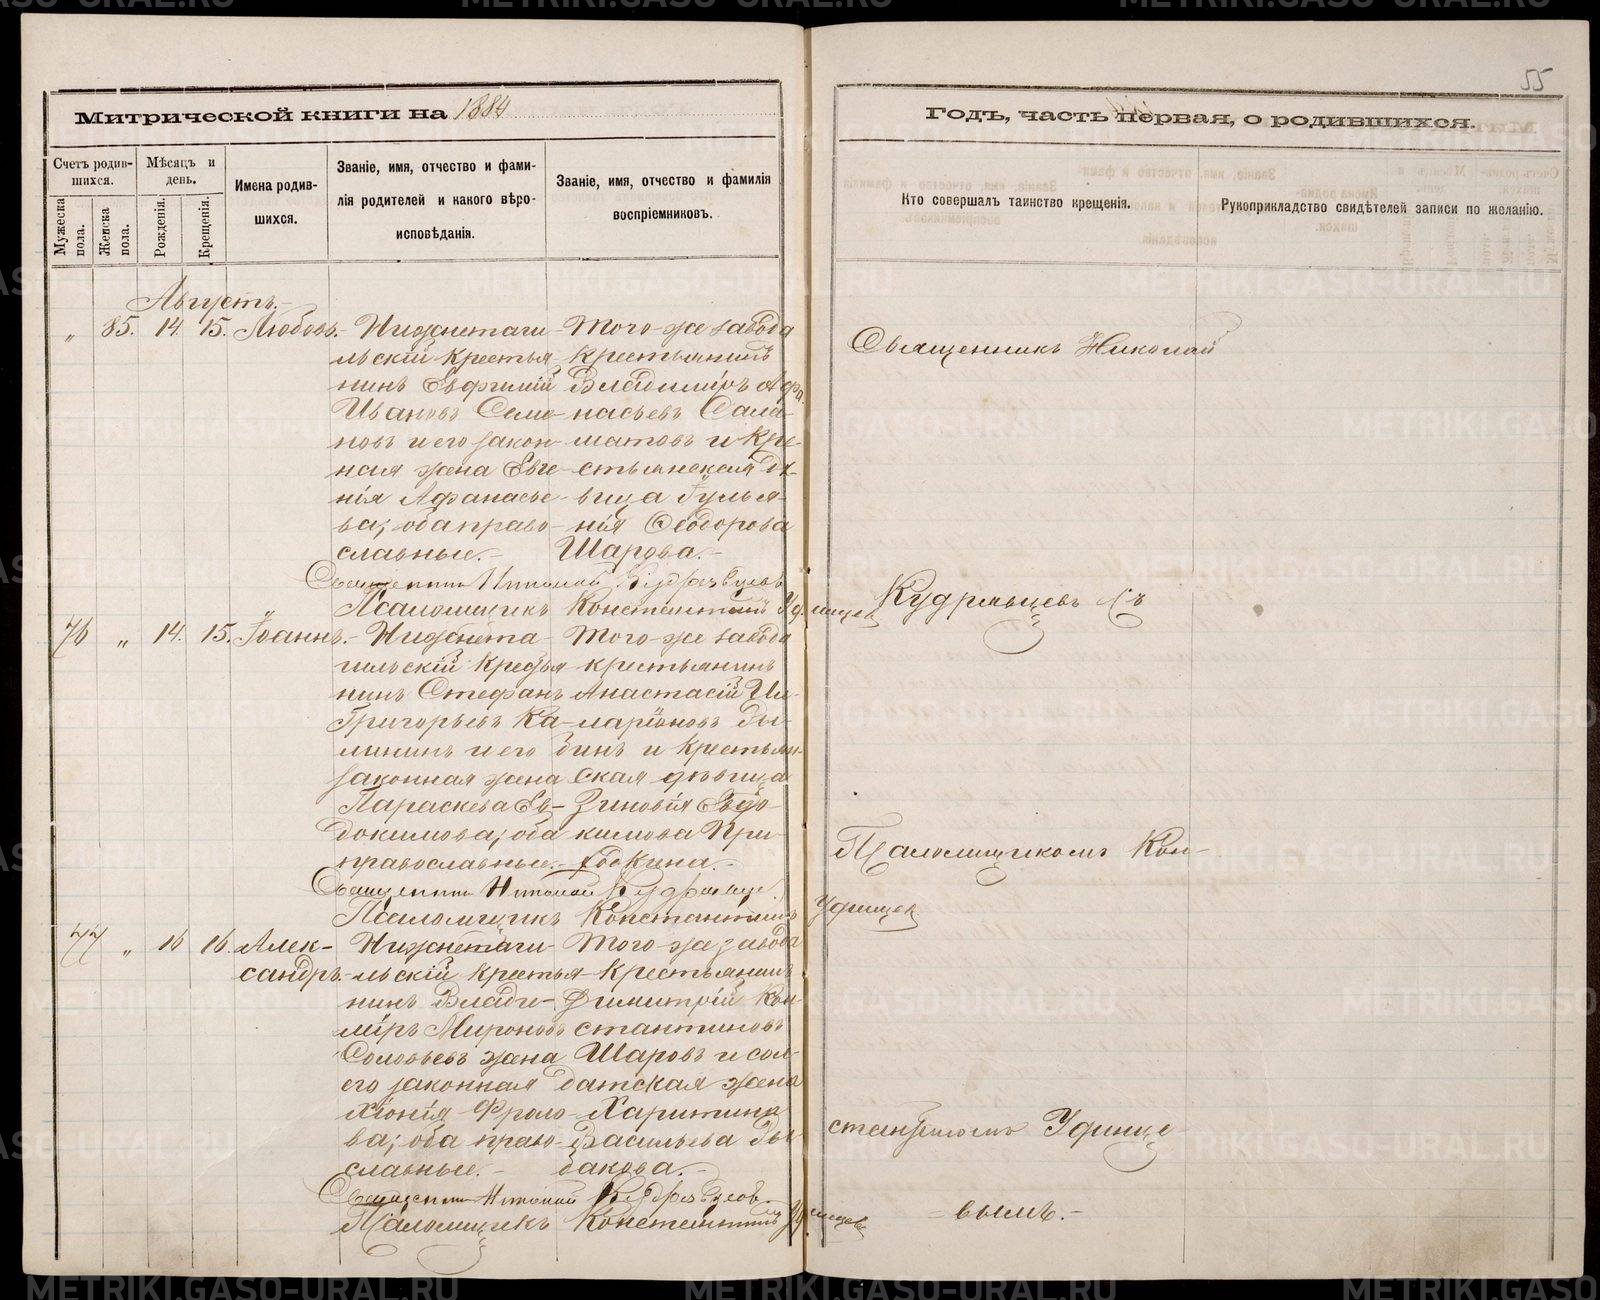 55
Митрической книги на 1884
Годъ, часть первая, о родившихся.
Счетъ родив-
шихся.
Мужеска пола.
Женска пола.
Мѣсяцъ и
день.
Рожденія.
Крещенія.
Имена родив-
шихся.
Званіе, имя, отчество и фами-
лія родителей и какого вѣро-
исповѣданія.
Званіе, имя, отчество и фамилія
воспріемниковъ.
Кто совершалъ таинство крещенія.
Рукоприкладство свидѣтелей записи по желанію.
Августъ.
„ 85. 14. 15. Любовь.
Нижнетаги-
льскій крестья-
нинъ Евфимій
Ивановъ Семе-
новъ и его закон-
ная жена Евге-
нія Афанасье-
ва; оба право-
славные.
Того-же завода
крестьянинъ
Владиміръ Афа-
насьевъ Сала-
матовъ и кре-
стьянская дѣ-
вица Гулья-
нія Ѳеодорова
Шарова.
Священникъ Николай Кудрявцевъ
Псаломщикъ Константинъ Удинцев
76 „ 14. 15. Іоаннъ.
Нижнета-
гильскій крестья-
нинъ Стефанъ
Григорьевъ Ка-
лининъ и его
законная жена
Параскева Ев-
докимова; оба
православные.
Того-же завода
крестьянинъ
Анастасій Ил-
ларіоновъ Ды-
бинъ и крестьян-
ская дѣвица
Зиновія Евдо-
кимова При-
Священникъ Николай Кудрявцев
Псаломщикъ Константинъ Удинцев
77 „ 16 16. Алек-
сандръ.
Нижнетаги-
льскій крестья-
нинъ Влади-
міръ Мироновъ
Соловьевъ жена
его законная
Хіонія Фроло-
ва; оба право-
славные.
Того-же завода
крестьянинъ
Димитрій Кон-
стантиновъ
Шаровъ и сол-
датская жена
Харитина
Васильева Ды-
бакова.
Священникъ Николай Кудрявцев
Псаломщикъ Константинъ Удинцев
Священникъ Николай
Кудрявцевъ съ
Псаломщикомъ Кон-
стантиномъ Удинце-
вымъ.
METRIKI.GASO-URAL.RU